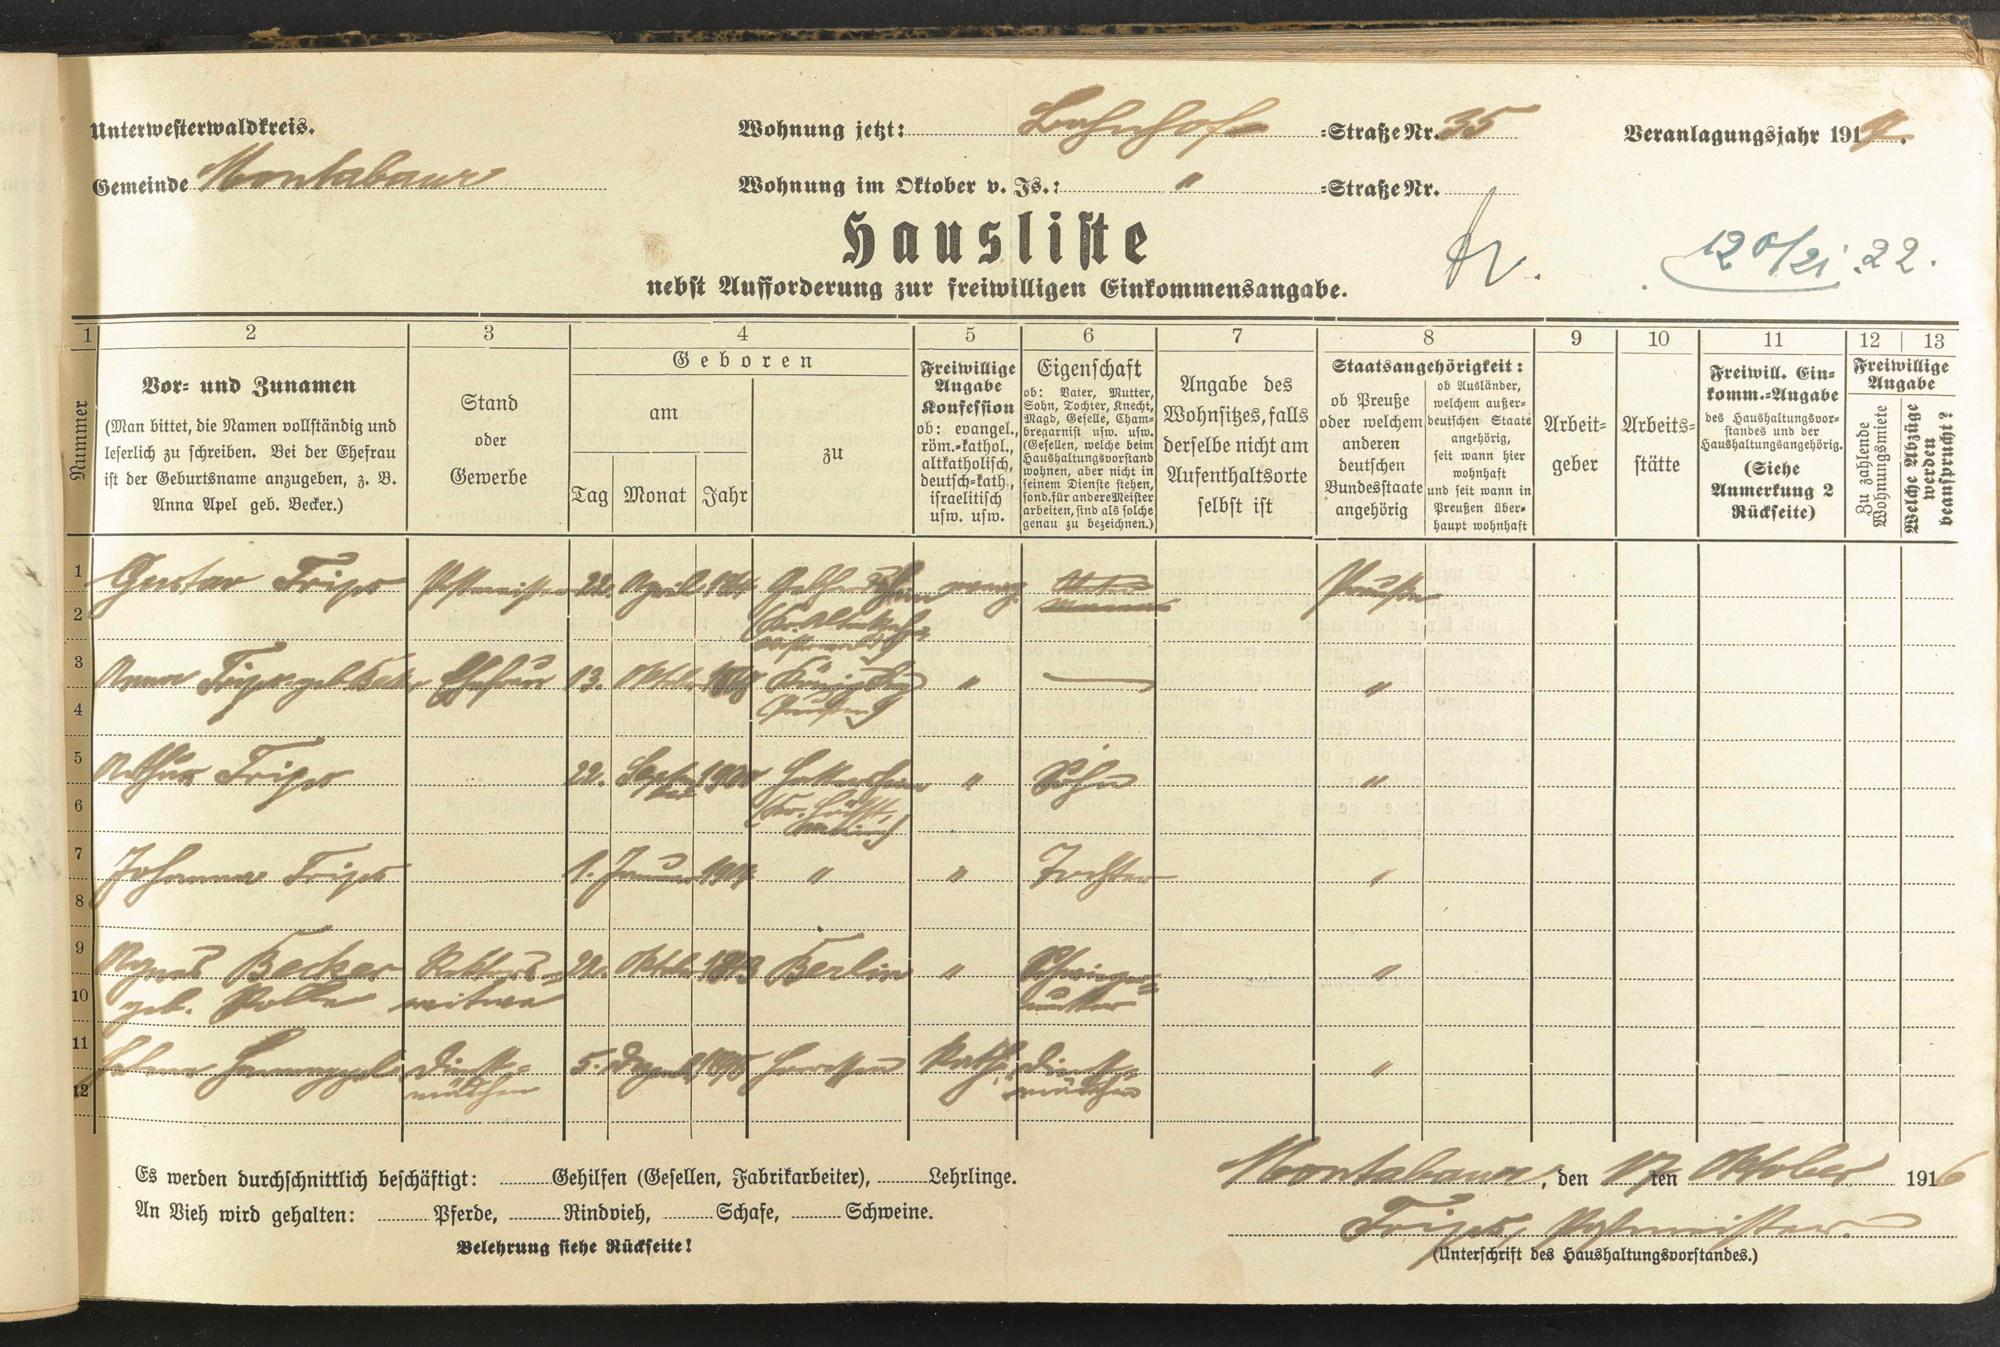 Unterwesterwaldkreis.
Wohnung jetzt: Bahnhof- =Straße Nr. 35
Veranlagungsjahr 1917.
Gemeinde Montabaur
Wohnung im Oktober v. Js.: " =Straße Nr.
Hausliste
nebst Aufforderung zur freiwilligen Einkommensangabe.
22.
1 2 3 4 5 6 7 8 9 10 11 12 13
Nummer
Vor- und Zunamen
(Man bittet, die Namen vollständig und
leserlich zu schreiben. Bei der Ehefrau
ist der Geburtsname anzugeben, z. B.
Anna Apel geb. Becker.)
Stand
oder
Gewerbe
Geboren
am
Tag Monat Jahr
zu
Freiwillige
Angabe
Konfession
ob: evangel.,
röm.-kathol.,
altkatholisch,
deutsch-kath.,
israelitisch
usw. usw.
Eigenschaft
ob: Vater, Mutter,
Sohn, Tochter, Knecht,
Magd, Geselle, Cham-
bregarnist usw. usw.
(Gesellen, welche beim
Haushaltungsvorstand
wohnen, aber nicht in
seinem Dienste stehen,
sond. für andere Meister
arbeiten, sind als solche
genau zu bezeichnen.)
Angabe des
Wohnsitzes, falls
derselbe nicht am
Aufenthaltsorte
selbst ist
Staatsangehörigkeit:
ob Preuße
oder welchem
anderen
deutschen
Bundesstaate
angehörig
ob Ausländer,
welchem außer-
deutschen Staate
angehörig,
seit wann hier
wohnhaft
und seit wann in
Preußen über-
haupt wohnhaft
Arbeit-
geber
Arbeits-
stätte
Freiwill. Ein-
komm.-Angabe
des Haushaltungsvor-
standes und der
Haushaltungsangehörig.
(Siehe
Anmerkung 2
Rückseite)
Freiwillige
Angabe
Zu zahlende
Wohnungsmiete
Welche Abzüge
werden
beansprucht?
1 Gustav Trips Postmeister 22. April evang. Preuße
2
3 Anna Trips geb. Becker Ehefrau 13. Oktob. " "
4
5 Arthur Trips 22. Septem- " Sohn "
6 ber
7 Johanna Trips 1. Januar " " Tochter "
8
9 Agnes Becker Rektors- Oktob. Berlin " Schwieger- "
10 geb. Polle witwe mutter
11 Dienst- 5. Dezemb. Kath. Dienst- "
12 mädchen mädchen
Es werden durchschnittlich beschäftigt: Gehilfen (Gesellen, Fabrikarbeiter), Lehrlinge.
An Vieh wird gehalten: Pferde, Rindvieh, Schafe, Schweine.
Belehrung siehe Rückseite!
Montabaur, den 17ten Oktober 1916
Trips, Postmeister.
(Unterschrift des Haushaltungsvorstandes.)